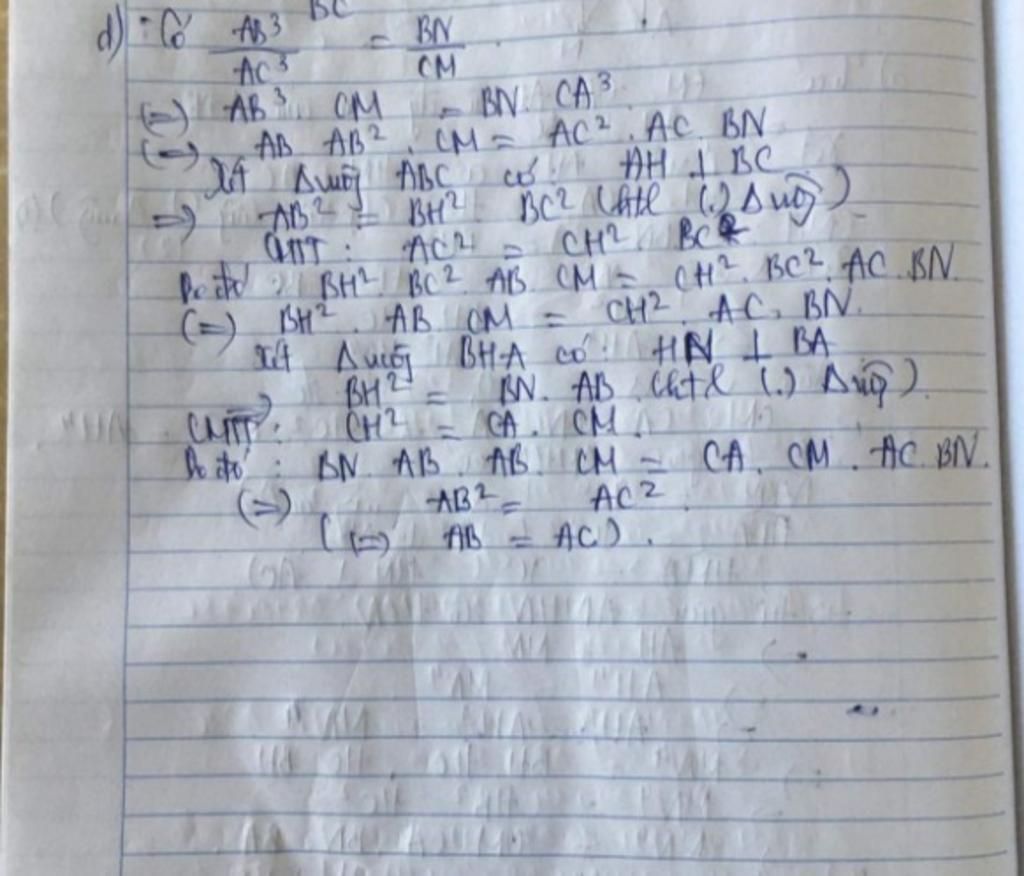 BC
d) : Có AB³/AC³ = BN/CM
(=) AB³. CM = BN. CA³
(=) AB AB². CM = AC². AC. BN
Xét Δ vuông ABC có: AH ⊥ BC
=) AB² = BH². BC² (htl (.) Δ vuông)
CMTT : AC² = CH². BC²
Do đó : BH². BC². AB. CM = CH². BC². AC. BN.
(=) BH². AB CM = CH². AC. BN.
Xét Δ vuông BHA có: HN ⊥ BA
=) BH² = BN. AB (htl (.) Δ vuông).
CMTT : CH² = CA. CM.
Do đó : BN. AB. AB. CM = CA. CM. AC. BN.
(=) AB² = AC².
( (=) AB = AC).